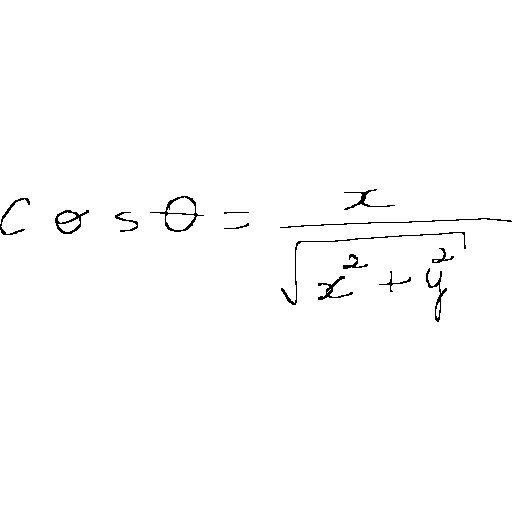 \cos\theta = \frac{x}{\sqrt{x^2+y^2}}